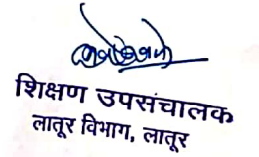 शिक्षण उपसंचालक
लातूर विभाग, लातूर